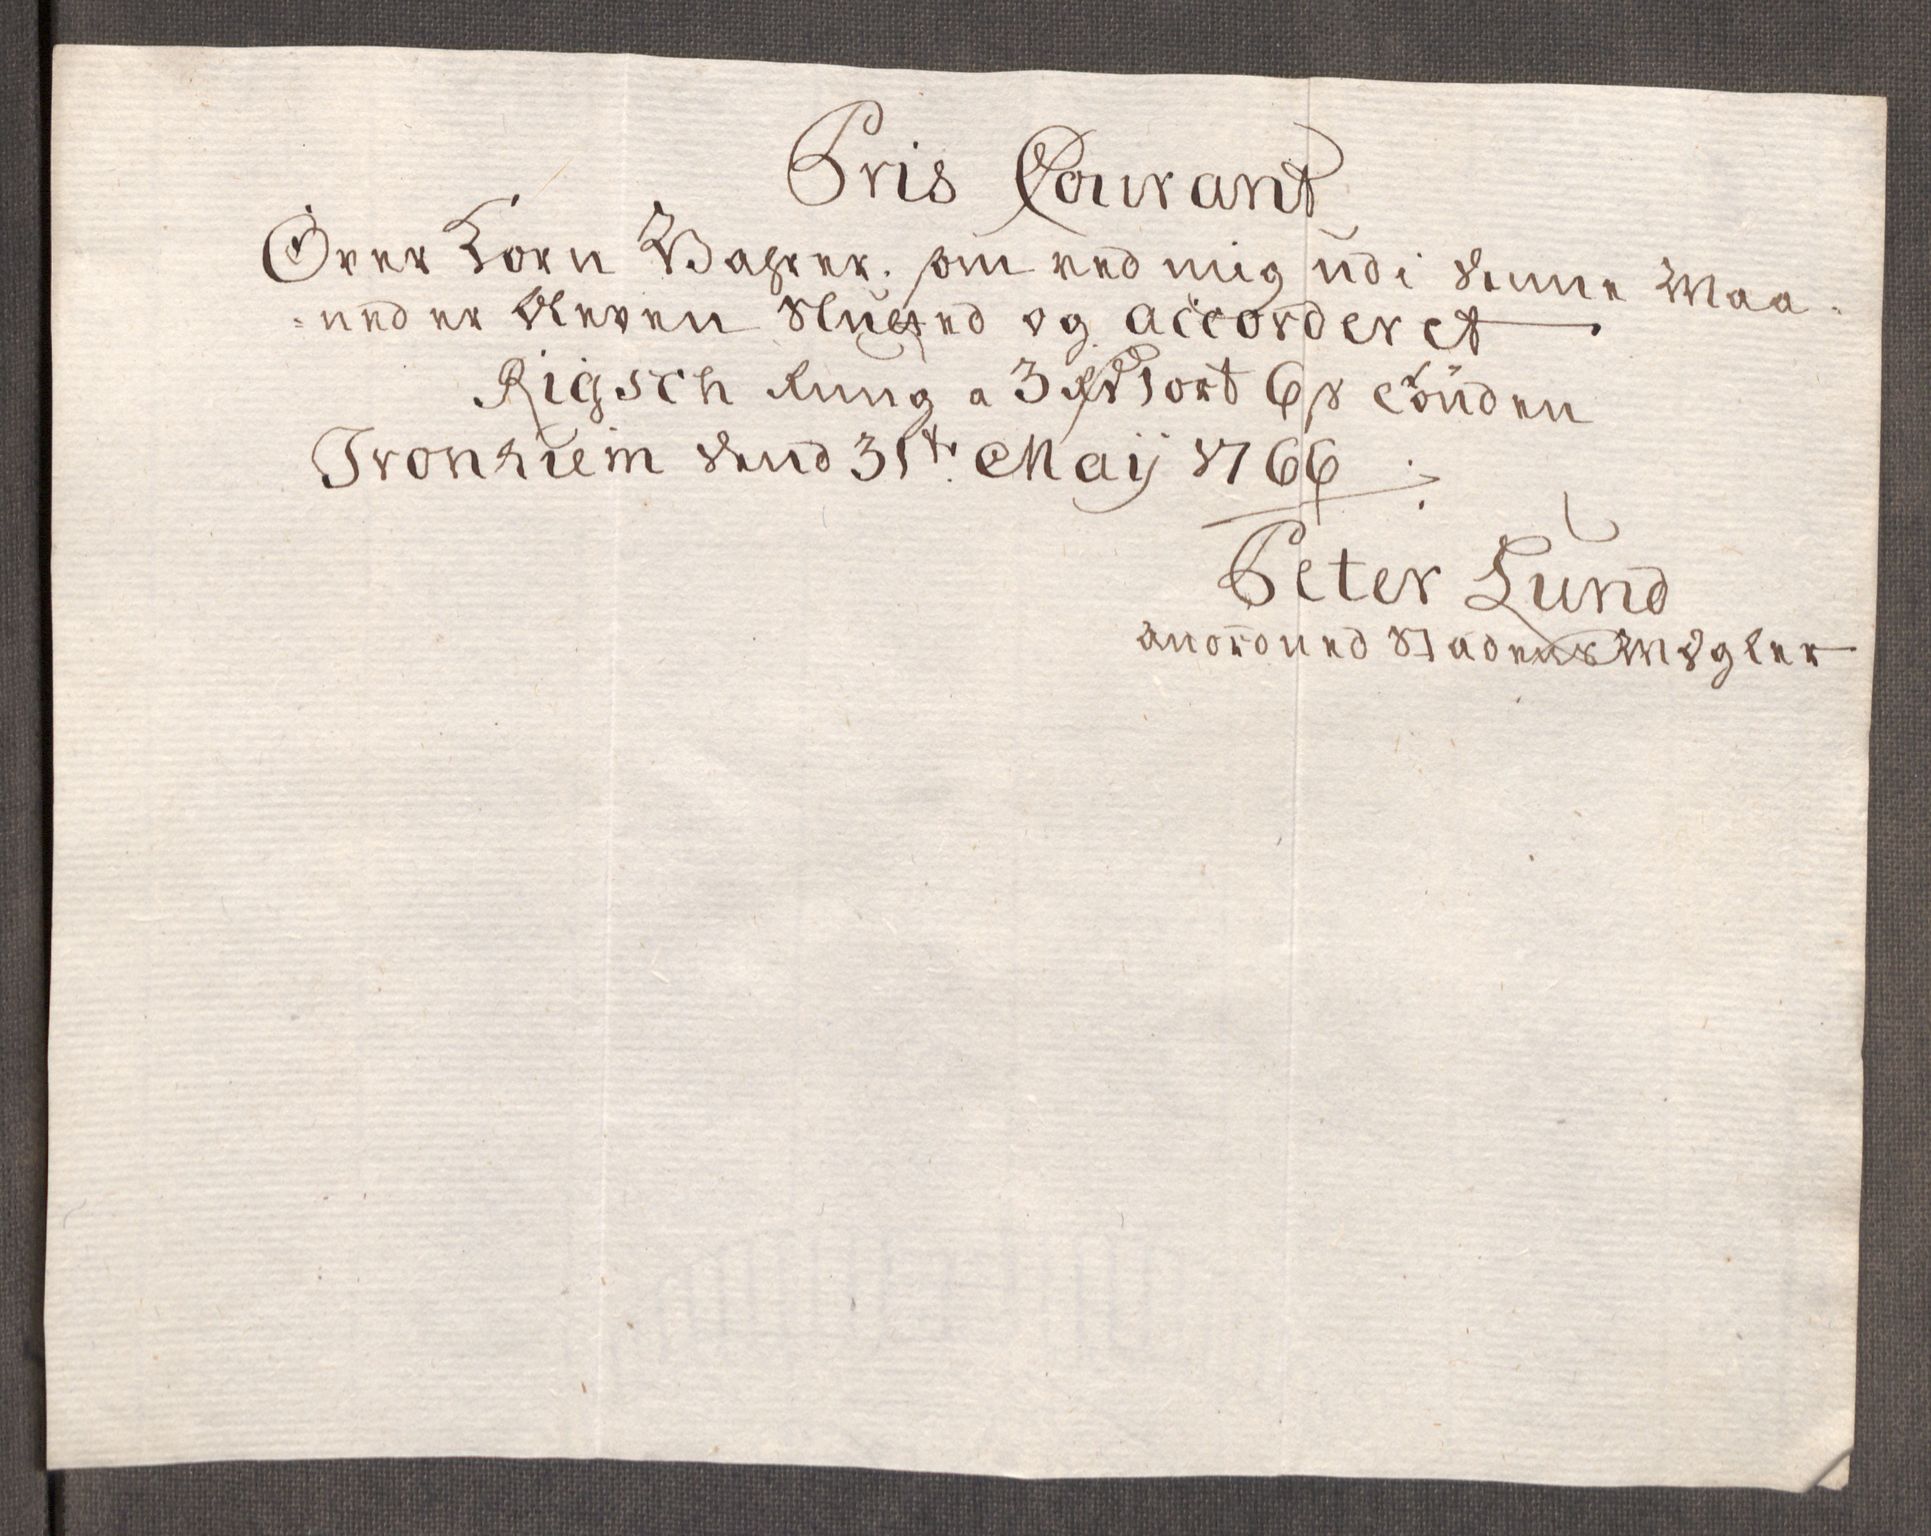 Pris Courant
Over Korn Wahrer. som ved mig udi denne Maa-
-ned er bleven Slutted og accorderet
Rigsch Rung a 3 Rd 1 ort 6 s Tönden
Tronhiem dend 31te Maij 1766
Peter Lund
anordned Stadens Mægler